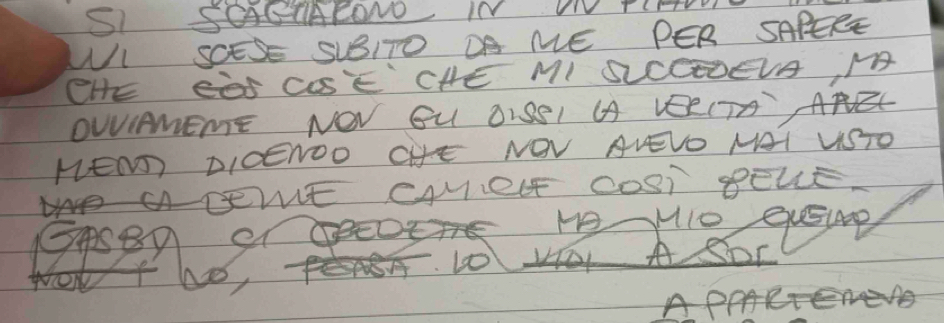 SI SCAGLIARONO IN UN PIANTO
LUI SCESE SUBITO DA ME PER SAPERE
CHE COS'È CHE MI SUCCEDEVA, MA
OVVIAMENTE NON GLI DISSI LA VERITÀ,
MENTII DICENDO CHE NON AVEVO MAI VISTO
DELLE CAMICIE COSÌ BELLE.
CI CREDETTE MA MIO
NON HO, PENSA. LO VIDI A
APPARTENEVA